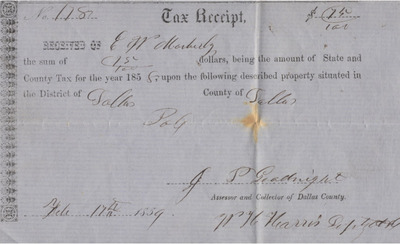 No. 118 Tax Receipt. $
RECEIVED OF E W
the sum of dollars, being the amount of State and
County Tax for the year 185 , upon the following described property situated in
the District of Dallas County of Dallas
Poll
J P Goodnight
Assessor and Collector of Dallas County.
Feb 17th 1859 W H Harris Dep